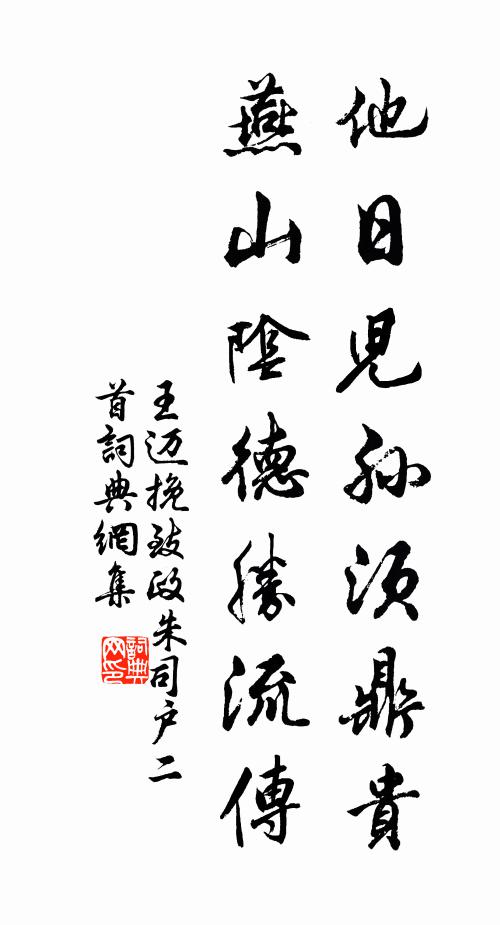 他日兒孫須鼎貴
燕山陰德勝流傳
王迈挽致政朱司户二
首詞典網集
詞典网印